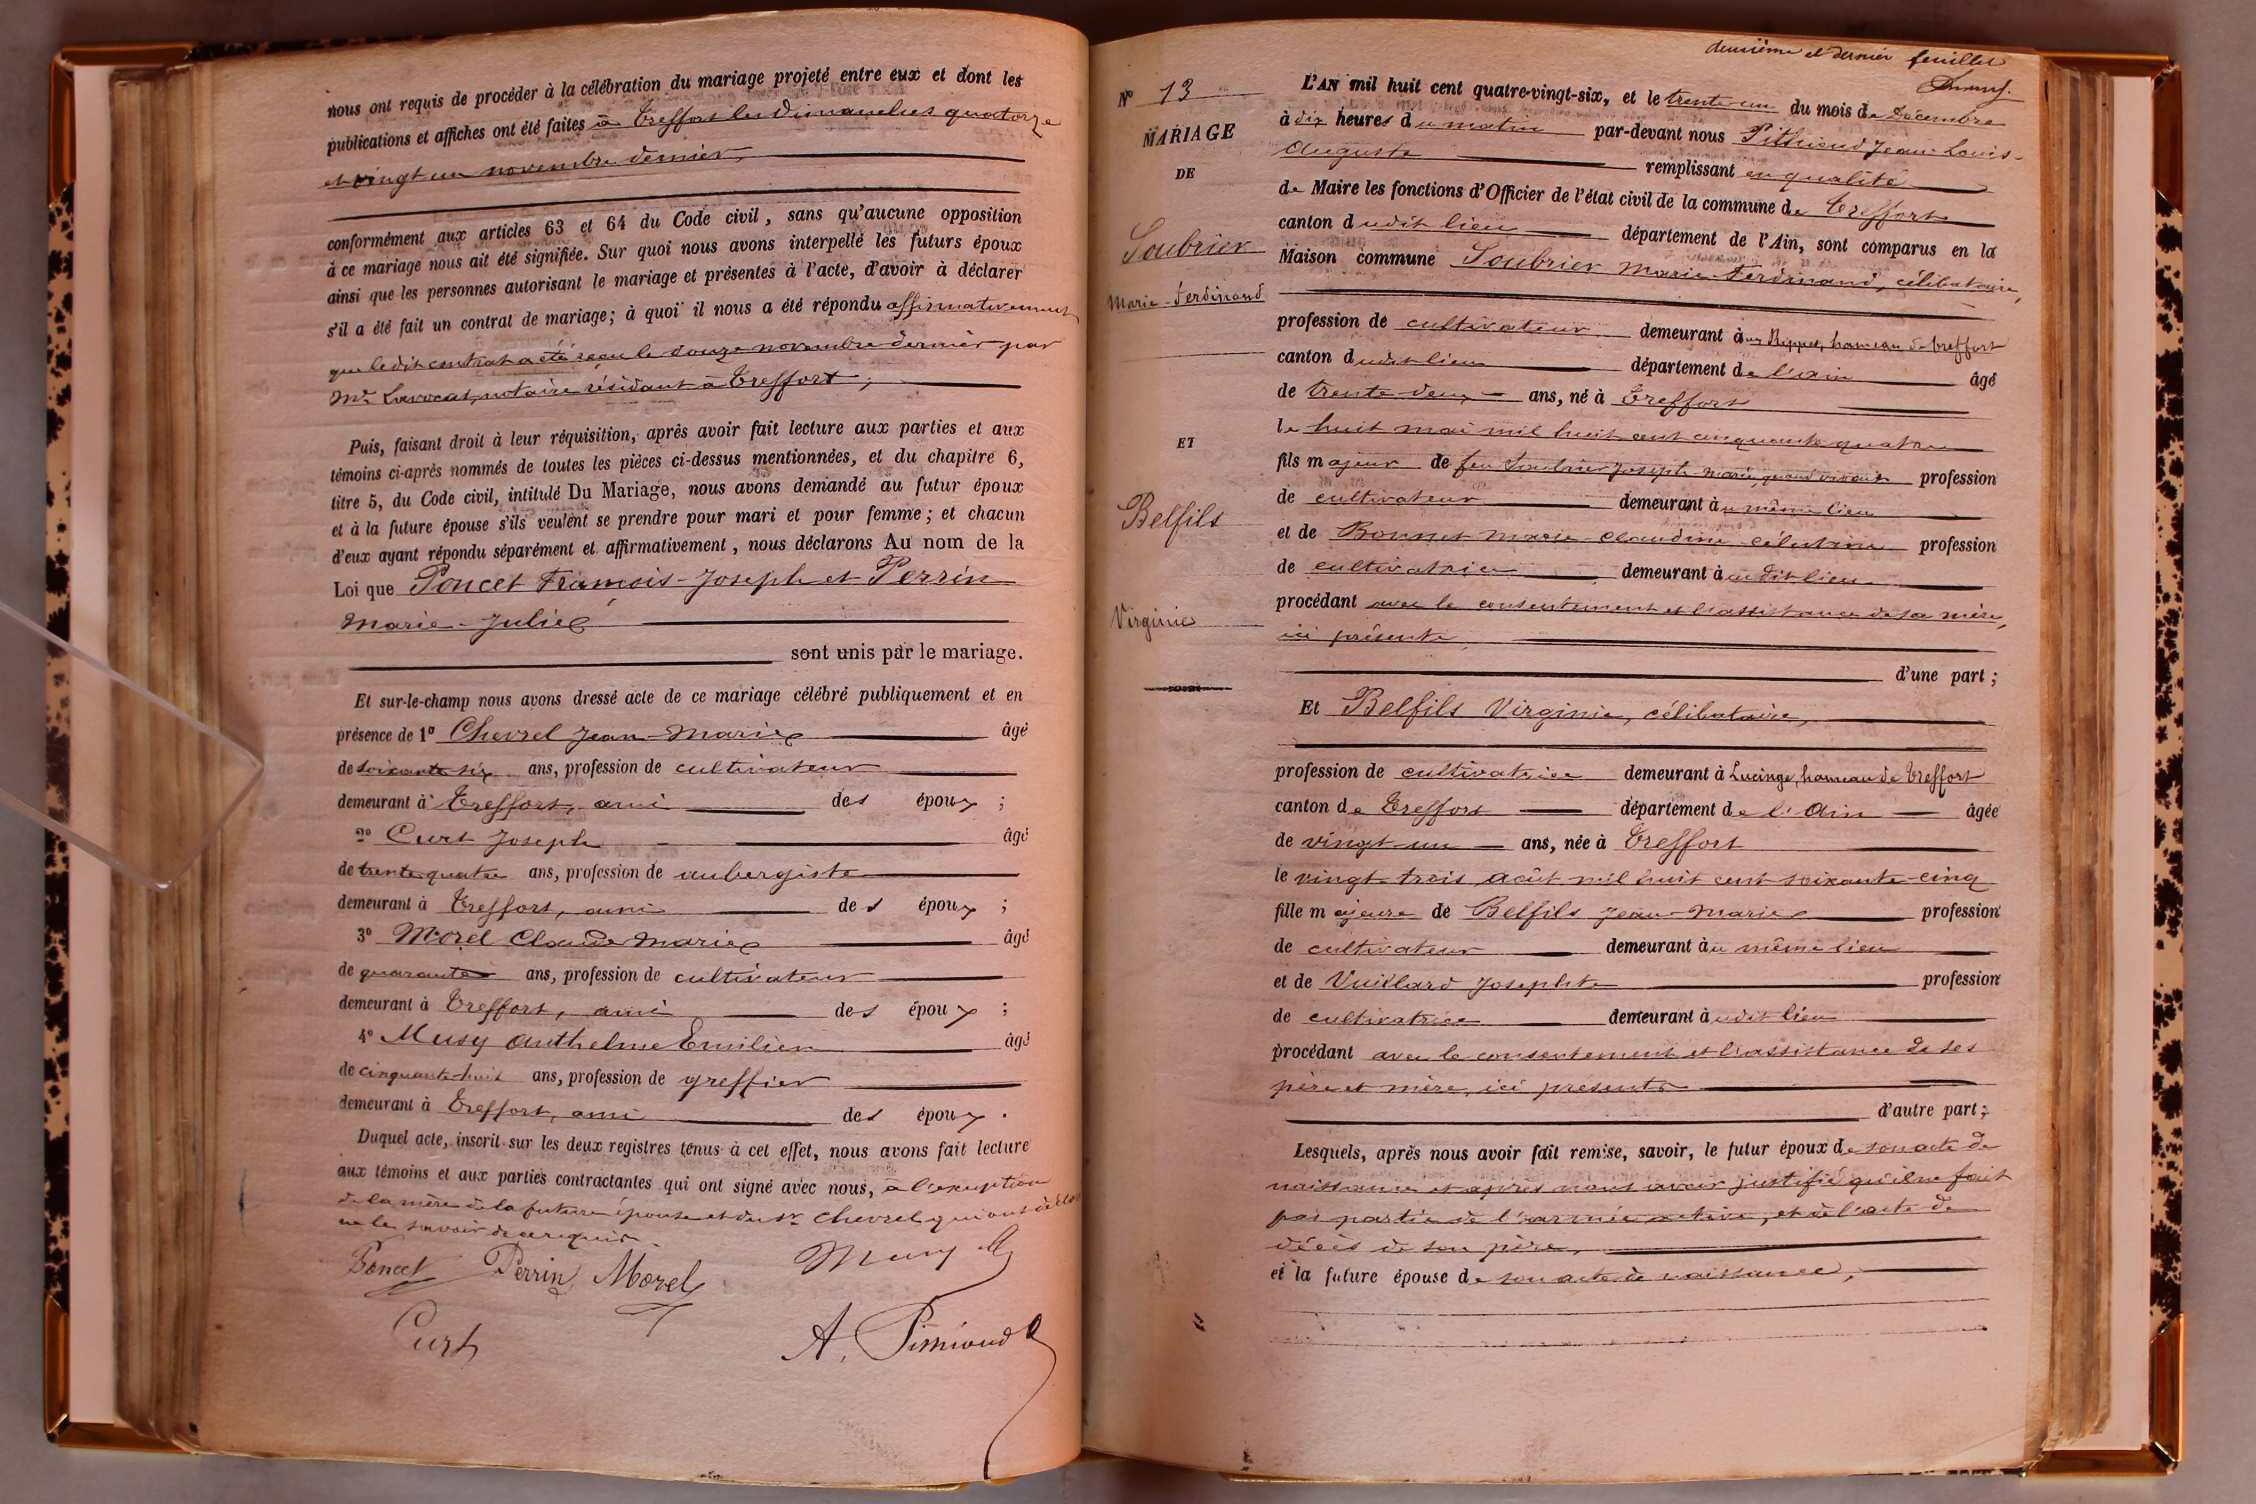 nous ont requis de procéder à la célébration du mariage projeté entre eux et dont les
publications et affiches ont été faites à Treffort les Dimanches quatorze
et vingt un novembre dernier,
conformément aux articles 63 et 64 du Code civil, sans qu'aucune opposition
à ce mariage nous ait été signifiée. Sur quoi nous avons interpellé les futurs époux
ainsi que les personnes autorisant le mariage et présentes à l'acte, d'avoir à déclarer
s'il a été fait un contrat de mariage; à quoi il nous a été répondu affirmativement
que ledit contrat a été reçu le douze novembre dernier par
Me Lavocat, notaire résidant à Treffort;
Puis, faisant droit à leur réquisition, après avoir fait lecture aux parties et aux
témoins ci-après nommés de toutes les pièces ci-dessus mentionnées, et du chapitre 6,
titre 5, du Code civil, intitulé Du Mariage, nous avons demandé au futur époux
et à la future épouse s'ils veulent se prendre pour mari et pour femme; et chacun
d'eux ayant répondu séparément et affirmativement, nous déclarons Au nom de la
Loi que Poncet François-Joseph et Perrin
Marie-Julie
sont unis par le mariage.
Et sur-le-champ nous avons dressé acte de ce mariage célébré publiquement et en
présence de 1º Chevrel Jean-Marie âgé
de soixante six ans, profession de cultivateur
demeurant à Treffort, ami des époux ;
2º Curt Joseph âgé
de trente quatre ans, profession de aubergiste
demeurant à Treffort, ami des époux ;
3º Morel Claude Marie âgé
de quarante ans, profession de cultivateur
demeurant à Treffort, ami des époux ;
4º Musy Anthelme Emilien âgé
de cinquante-huit ans, profession de greffier
demeurant à Treffort, ami des époux .
Duquel acte, inscrit sur les deux registres tenus à cet effet, nous avons fait lecture
aux témoins et aux parties contractantes qui ont signé avec nous, à l'exception
de la mère de la future épouse et du Sr Chevrel, qui ont déclaré
ne le savoir de ce requis.
Poncet Perrin Morel Musy
Curt A. Pithioud
deuxième et dernier feuillet
Nº 13
MARIAGE
DE
Soubrier
Marie-Ferdinand
ET
Belfils
Virginie
L'AN mil huit cent quatre-vingt-six, et le trente-un du mois de Décembre
à dix heures du matin par-devant nous Pithioud Jean-Louis-
Auguste remplissant en qualité
de Maire les fonctions d'Officier de l'état civil de la commune de Treffort
canton dudit lieu département de l'Ain, sont comparus en la
Maison commune Soubrier Marie-Ferdinand, célibataire,
profession de cultivateur demeurant à hameau de Treffort
canton dudit lieu département de l'Ain âgé
de trente-deux ans, né à Treffort
le huit mai mil huit cent cinquante quatre
fils majeur de feu Soubrier Joseph Marie, quand vivait profession
de cultivateur demeurant au même lieu
et de Bonnet Marie-Claudine Célestine profession
de cultivatrice demeurant audit lieu
procédant avec le consentement et l'assistance de sa mère,
ici présente,
d'une part ;
Et Belfils Virginie, célibataire,
profession de cultivatrice demeurant à Lucinge, hameau de Treffort
canton de Treffort département de l'Ain âgée
de vingt-un ans, née à Treffort
le vingt-trois août mil huit cent soixante-cinq
fille majeure de Belfils Jean-Marie profession
de cultivateur demeurant au même lieu
et de Vuillard Josephte profession
de cultivatrice demeurant audit lieu
procédant avec le consentement et l'assistance de ses
père et mère, ici présents
d'autre part;
Lesquels, après nous avoir fait remise, savoir, le futur époux de son acte de
naissance et après nous avoir justifié qu'il ne fait
pas partie de l'armée active, et de l'acte de
décès de son père,
et la future épouse de son acte de naissance;